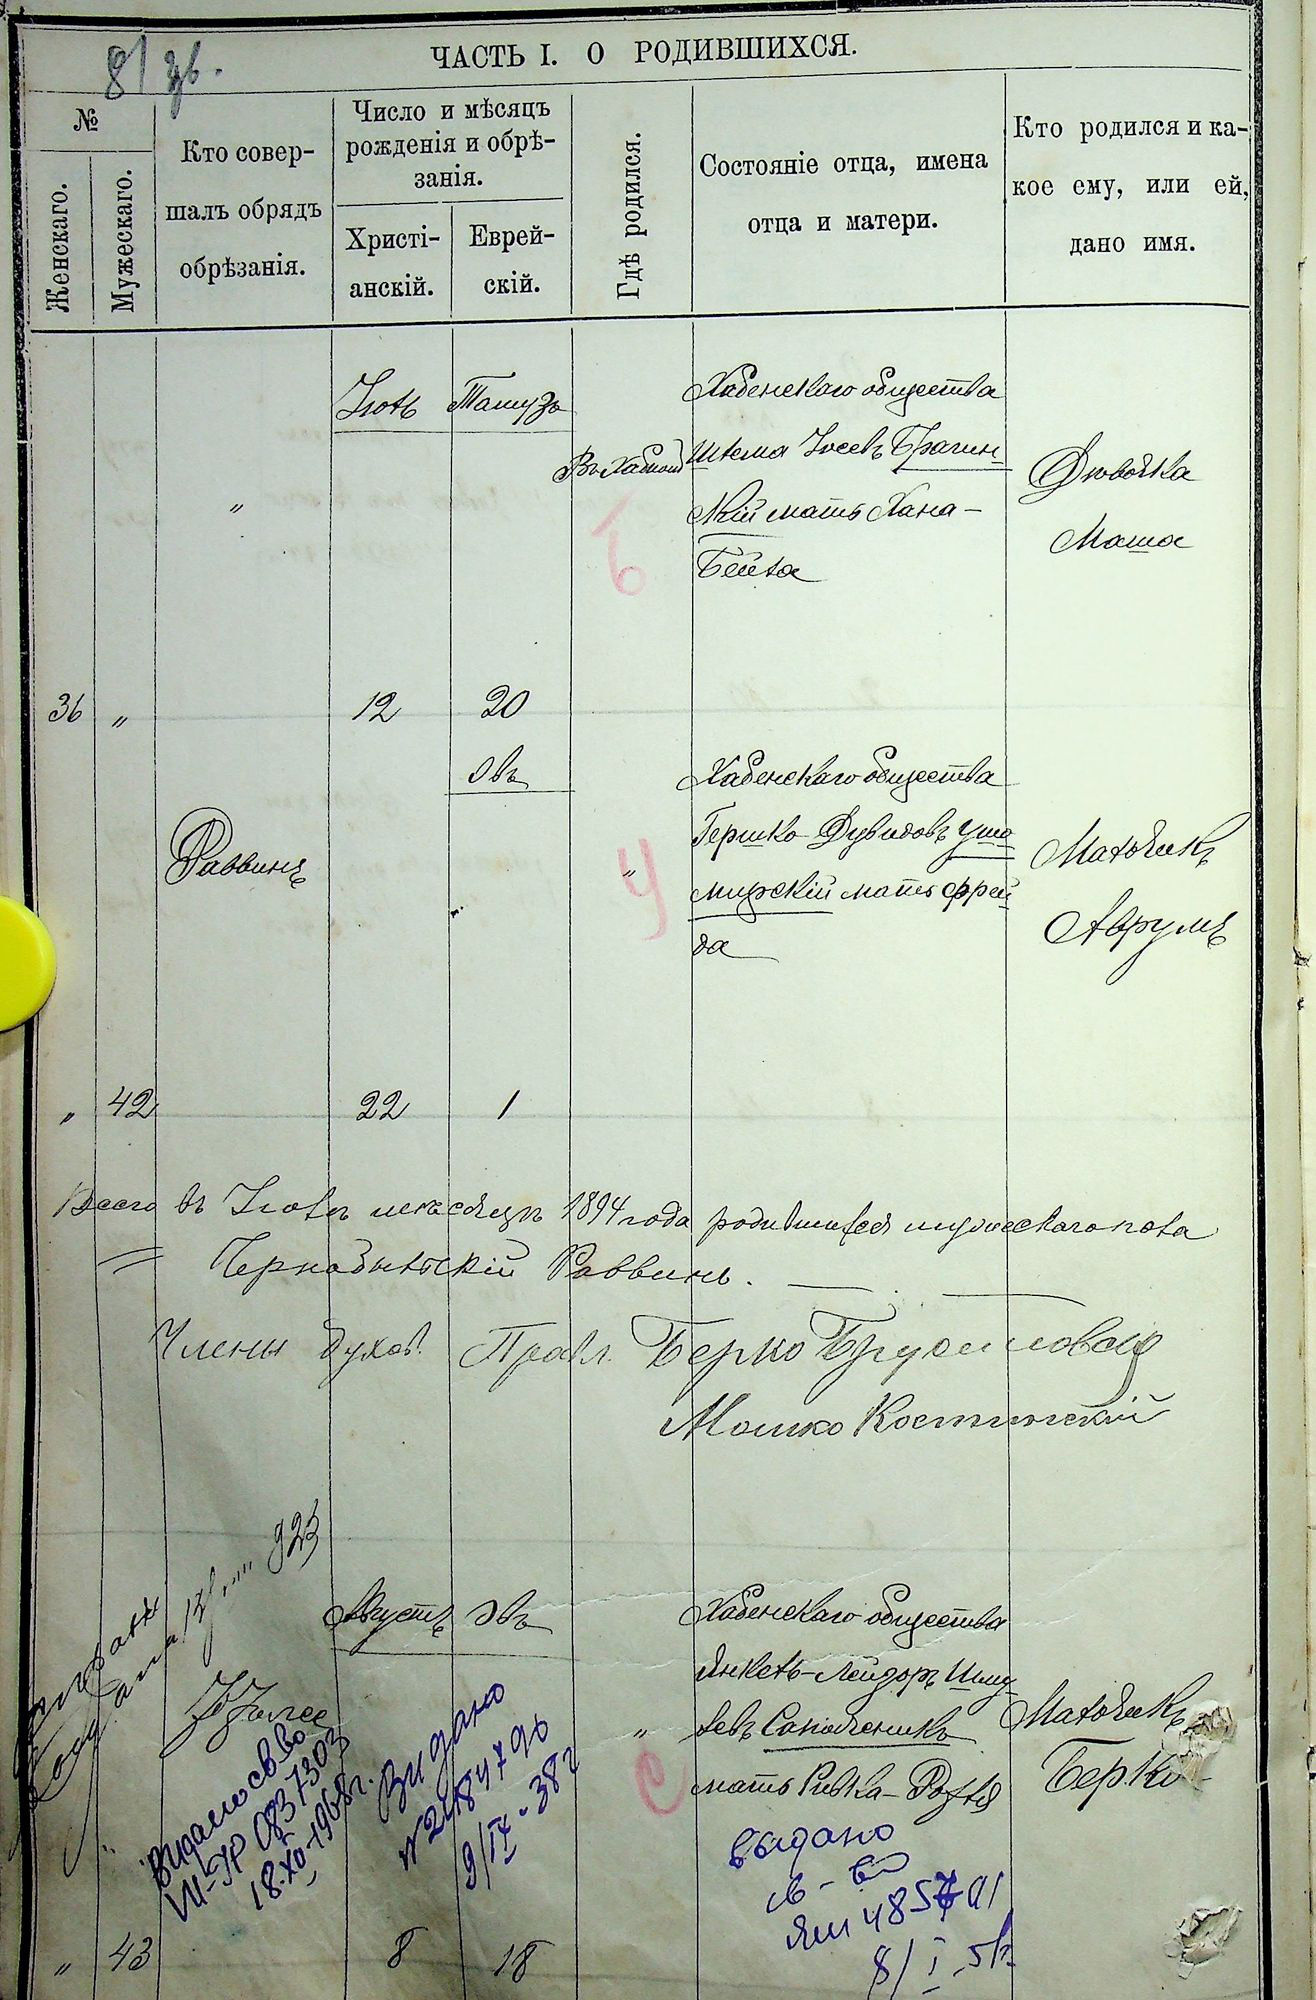 81 зв.
ЧАСТЬ I. О РОДИВШИХСЯ.
№
Женскаго.
Мужескаго.
Кто совер-
шалъ обрядъ
обрѣзанія.
Число и мѣсяцъ
рожденія и обрѣ-
занія.
Христі-
анскій.
Еврей-
скій.
Гдѣ родился.
Состояніе отца, имена
отца и матери.
Кто родился и ка-
кое ему, или ей,
дано имя.
Іюль Тамузъ
"
Въ Хабномъ
Б
Хабенскаго общества
Шлема Іосевъ Брагин-
скій мать Хана-
Бейла
Дѣвочка
Маша
36 " 12 20
Овъ
Раввинъ
"
У
Хабенскаго общества
Гершко Дувидовъ Ушо
мирскій мать Фрей
да
Мальчикъ
Аврумъ
" 42 22 1
Всего въ Іюлѣ мѣсяцѣ 1894 года родившихся мужескаго пола
Чернобыльскій Раввинъ.
Члены Духов. Правл. Берко Брусиловскій
Мошко Костинскій
923
Августъ Овъ
"
С
Хабенскаго общества
Янкель-Лейзоръ Шму
левъ Сапожникъ
мать Ривка-Рохля
Мальчикъ
Берко
Видано св-во
18.XII-1968г.
Видано
9/IX-38г
выдано
св-во
" 43 8 18